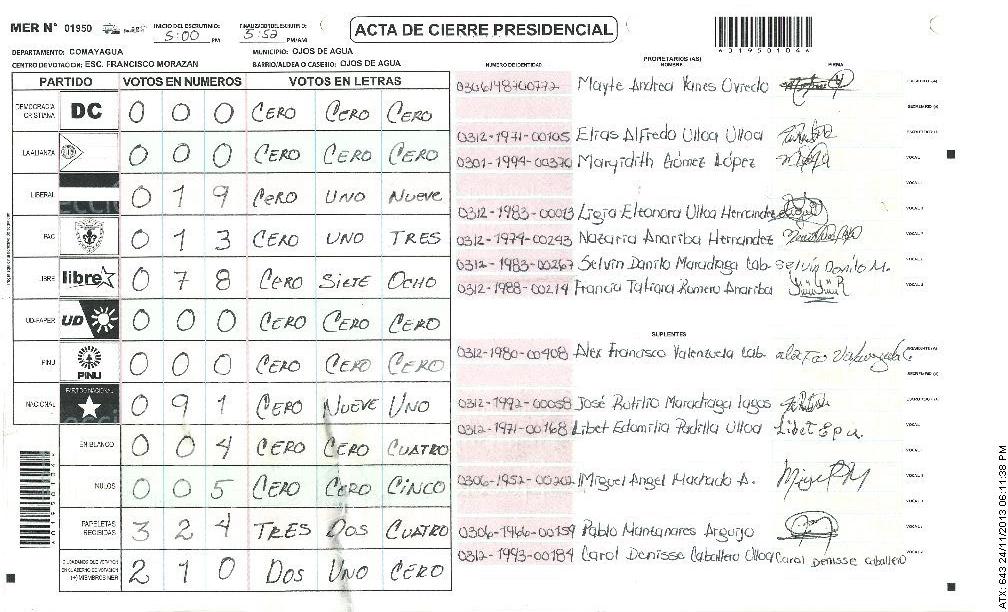 MER N° 01950
INICIO DEL ESCRUTINIO: 5:00 PM
FINALIZADO DEL ESCRUTINIO: 5:52 PM/AM
ACTA DE CIERRE PRESIDENCIAL
A019501044
DEPARTAMENTO: COMAYAGUA
MUNICIPIO: OJOS DE AGUA
CENTRO DE VOTACION: ESC. FRANCISCO MORAZAN
BARRIO/ALDEA O CASERIO: OJOS DE AGUA
PARTIDO VOTOS EN NUMEROS VOTOS EN LETRAS
DEMOCRACIA CRISTIANA DC 0 0 0 CERO CERO CERO
LA ALIANZA 0 0 0 CERO CERO CERO
LIBERAL 0 1 9 CERO UNO NUEVE
PAC 0 1 3 CERO UNO TRES
LIBRE libre 0 7 8 CERO SIETE OCHO
UD-FAPER UD 0 0 0 CERO CERO CERO
PINU PINU 0 0 0 CERO CERO CERO
NACIONAL PARTIDO NACIONAL 0 9 1 CERO NUEVE UNO
EN BLANCO 0 0 4 CERO CERO CUATRO
NULOS 0 0 5 CERO CERO CINCO
PAPELETAS RECIBIDAS 3 2 4 TRES DOS CUATRO
CIUDADANOS QUE VOTARON EN CUADERNO DE VOTACION (+) MIEMBROS MER 2 1 0 DOS UNO CERO
PROPIETARIOS (AS)
NUMERO DE IDENTIDAD NOMBRE FIRMA
Mayte Andrea Yanes Oviedo
0312-1971-00105 Elias Alfredo Ulloa Ulloa
0301-1994-00370 Marydith Gómez López
0312-1983-00013 Ligia Eleonora Ulloa Hernandez
0312-1974-00243 Nazaria Anariba Hernandez
0312-1983-00267 Selvin Danilo Maradiaga Cab. Selvin Danilo M.
0312-1988-00214 Francia Tatiana Romero Anariba
SUPLENTES
0312-1980-00408 Alex Francisco Valenzuela Cab.
0312-1992-00058 José Rutilio Maradiaga Lagos
0312-1971-00168 Libet Edomilia Padilla Ulloa Libet E p u.
0306-1952-00202 Miguel Angel Machado A.
0306-1966-00159 Pablo Manzanares Argurjo
0312-1993-00184 Carol Denisse Caballero Ulloa Carol Denisse Caballero
ATX: 643 24/11/2013 06:11:38 PM